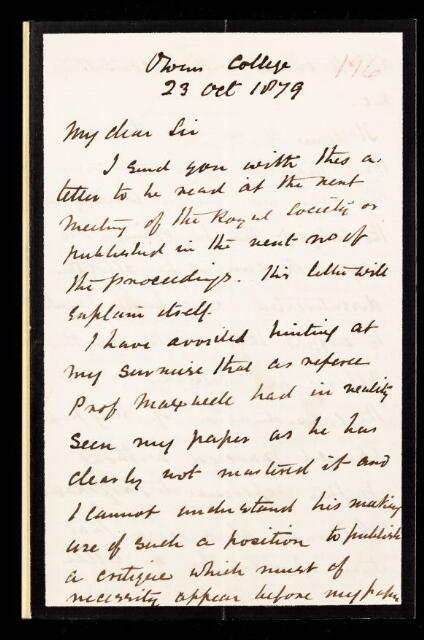 Owens College
196
23 Oct 1879
My dear Sir
I send you with this a
letter to be read at the next
meeting of the Royal Society or
published in the next no of
the proceedings. This letter will
explain itself.
I have avoided hinting at
my surmise that as referee
Prof Maxwell had in reality
seen my paper as he has
clearly not mastered it and
I cannot understand his making
use of such a position to publish
a critique which must of
necessity appear before my paper